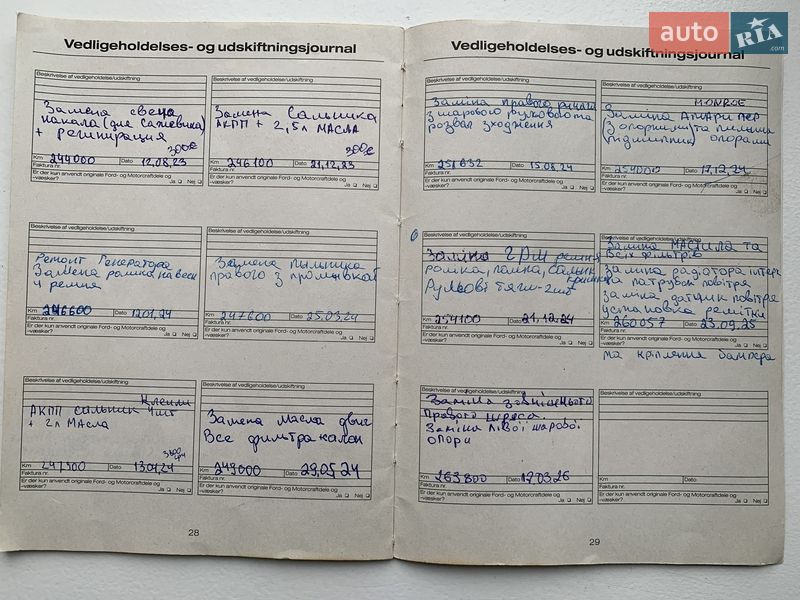 auto RIA .com
Vedligeholdelses- og udskiftningsjournal
Beskrivelse af vedligeholdelse/udskiftning
Замена свечи
накала (для сажевика)
+ регинирация
300€
Km 244000 Dato 12.08.23
Faktura nr.
Er der kun anvendt originale Ford- og Motorcraftdele og
-væsker? Ja Nej
Beskrivelse af vedligeholdelse/udskiftning
Замена Сальника
АКПП + 2,5л МАСЛА
300€
Km 246100 Dato 21,12,23
Faktura nr.
Er der kun anvendt originale Ford- og Motorcraftdele og
-væsker? Ja Nej
Beskrivelse af vedligeholdelse/udskiftning
Ремонт Генератора
Замена ролика навесн
и ремня
Km 246600 Dato 1201,24
Faktura nr.
Er der kun anvendt originale Ford- og Motorcraftdele og
-væsker? Ja Nej
Beskrivelse af vedligeholdelse/udskiftning
Замена пыльника
правого з промывкой
Km 247600 Dato 25.03.24
Faktura nr.
Er der kun anvendt originale Ford- og Motorcraftdele og
-væsker? Ja Nej
Beskrivelse af vedligeholdelse/udskiftning
АКПП сальник
+ 2л Масла
Km 247500 Dato 13.01.24
Faktura nr.
Er der kun anvendt originale Ford- og Motorcraftdele og
-væsker? Ja Nej
Beskrivelse af vedligeholdelse/udskiftning
Замена масла двиг
Все фильтра+салон
Km 249000 Dato 29,05,24
Faktura nr.
Er der kun anvendt originale Ford- og Motorcraftdele og
-væsker? Ja Nej
28
Vedligeholdelses- og udskiftningsjournal
Beskrivelse af vedligeholdelse/udskiftning
Заміна правого ричага
з шаровою
розвал сходження
Km 251832 Dato 15.08.24
Faktura nr.
Er der kun anvendt originale Ford- og Motorcraftdele og
-væsker? Ja Nej
Beskrivelse af vedligeholdelse/udskiftning
MONROE
Заміна Аморт пер
(з опорними та пильник
підшипник опорами
Km 254000 Dato 17,12,24
Faktura nr.
Er der kun anvendt originale Ford- og Motorcraftdele og
-væsker? Ja Nej
Beskrivelse af vedligeholdelse/udskiftning
Заміна ГРМ ремня
ролика, помпа, сальник
Рульові тяги-2шт
Km 254100 Dato 21,12,24
Faktura nr.
Er der kun anvendt originale Ford- og Motorcraftdele og
-væsker? Ja Nej
Beskrivelse af vedligeholdelse/udskiftning
Заміна Мастила та
Всіх фільтрів
заміна радіатора інтер
та патрубок повітря
заміна датчик повітря
установка решітки
Km 260057 Dato 23.09.25
Faktura nr.
Er der kun anvendt originale Ford- og Motorcraftdele og
-væsker? Ja Nej
та кріплення бампера
Beskrivelse af vedligeholdelse/udskiftning
Заміна зовнішнього
правого шруса.
Заміна лівої шарової
опори
Km 263800 Dato 17.03.26
Faktura nr.
Er der kun anvendt originale Ford- og Motorcraftdele og
-væsker? Ja Nej
Beskrivelse af vedligeholdelse/udskiftning
Km Dato
Faktura nr.
Er der kun anvendt originale Ford- og Motorcraftdele og
-væsker? Ja Nej
29